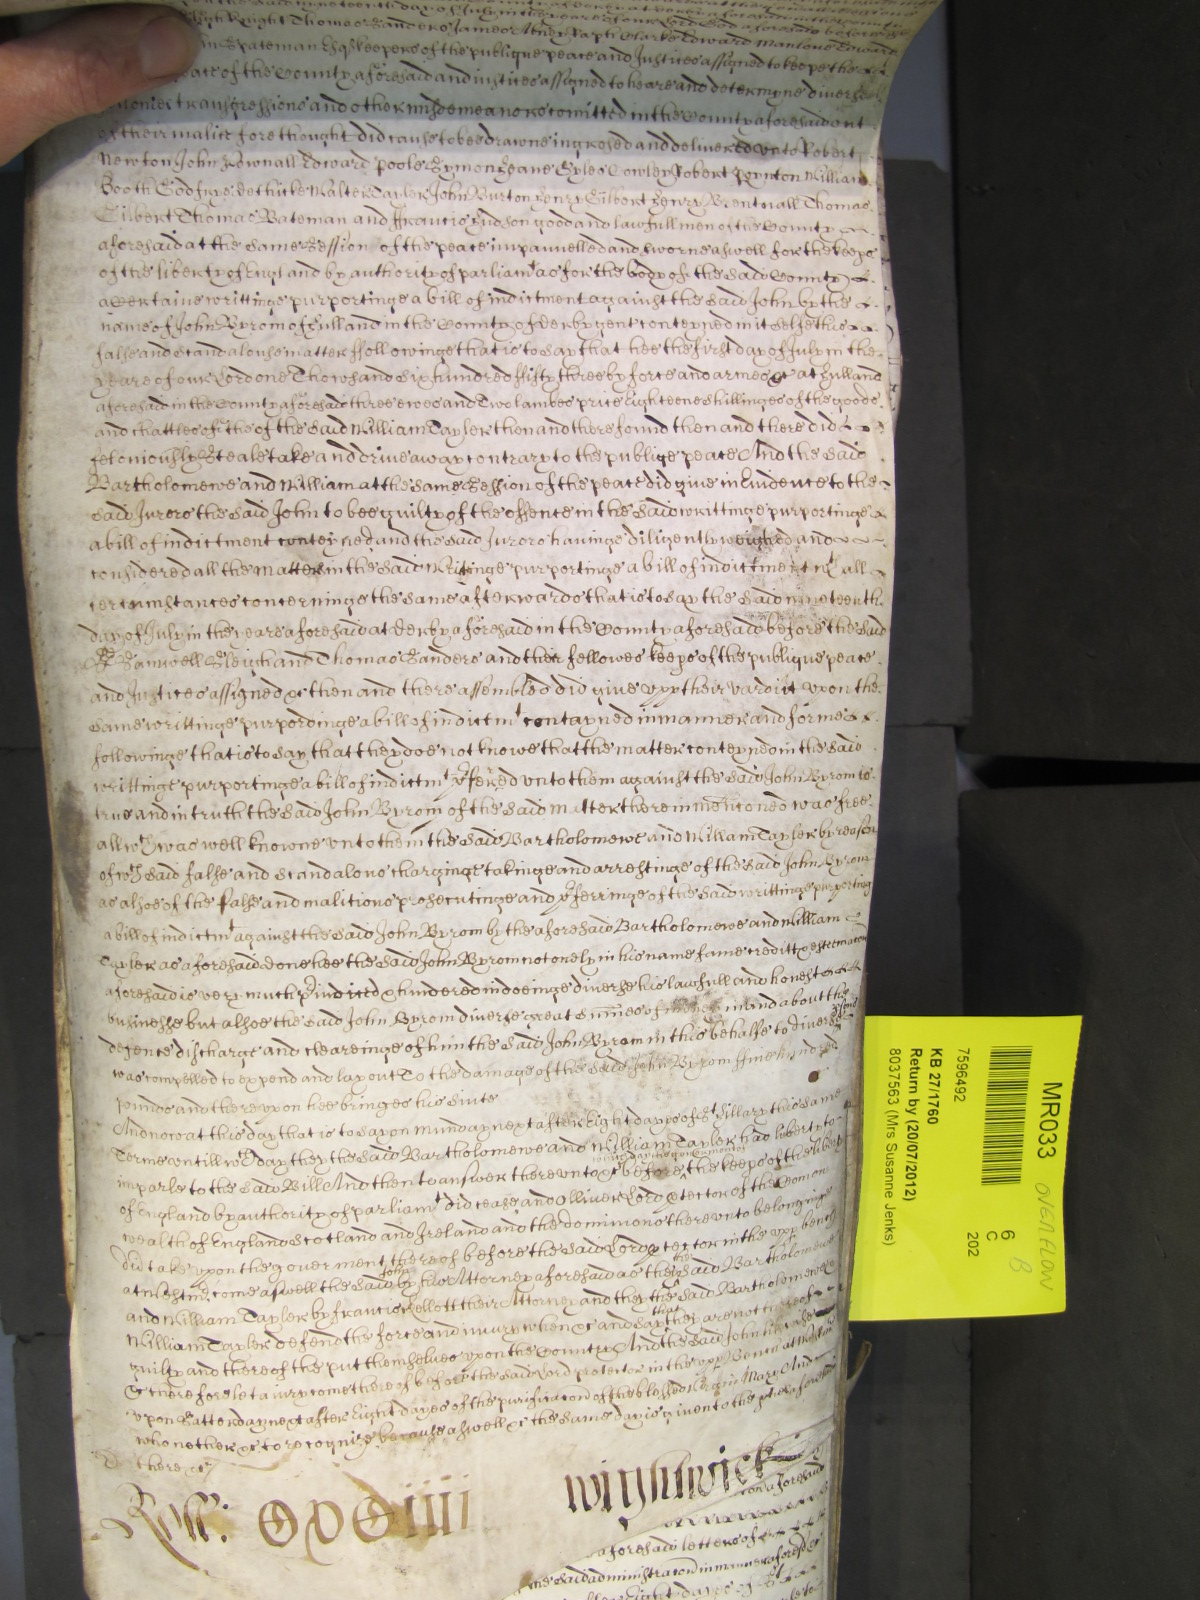 the said nineteenth day of July in the yeare of our Lord God aforesaid before
Knight Thomas Sanders James Abney Bapti Clarke Edward Manlove Edward
Bateman Esqs keepers of the publique peace and Justices assigned to keepe the
peace of the County aforesaid and justices assigned to heare and determyne diverse
transgressions and other misdemeanors comitted in the County aforesaid out
of their malice forethought did cause to bee drawne ingrosed and delivered unto Robert
Newton John Rownall Edward Poole Symon Heane Gyles Cowley Robert Poynton William
Booth Godfrye Walter Tayler John Burton Henry Gilbert Henry Brentnall Thomas
Gilbert Thomas Bateman and Francis Hudson good and lawfull men of the County
aforesaid at the same Session of the peace impannelled and sworne aswell for the keeps
of the liberty of England by authority of parliamt as for the body of the said County
a certaine writtinge purportinge a bill of indictment against the said John by the
name of John Byrom of Hulland in the County of Derby gent conteyned in it selfe this
false and scandalouse matter ffollowinge that is to say that hee the first day of July in the
yeare of our Lord one Thowsand six hundred fifty three by force and armes &c at Hulland
aforesaid in the County aforesaid three ewes and Two lambes price Eighteene shillinges of the goods
and chattles of the of the said William Tayler then and there found then and there did
feloniously Steale take and drive away contrary to the publique peace And the said
Bartholomewe and William at the same Session of the peace did give in Evidence to the
said Jurors the said John to bee guilty of the offence in the said writtinge purportinge
a bill of indictment conteyned and the said Jurors havinge diligently weighed and
considered all the matter in the said writinge purportinge a bill of indictment wth all
cercumstances concerninge the same afterwards that is to say the said nyneteenth
day of July in the yeare aforesaid at Derby aforesaid in the County aforesaid before the said
Samwell Sleigh and Thomas Sanders and their fellowes keeps of the publique peace
and Justices assigned &c then and there assembled did give upp their vardict upon the
same writtinge purpordinge a bill of indictmt contayned in manner and forme
followinge that is to say that they doe not knowe that the matter conteyned in the said
writtinge purportinge a bill of indictmt pferred unto them against the said John Byrom is
true and in truth the said John Byrom of the said matter therein menconed was free
all wch was well knowne unto them the said Bartholomewe and William Tayler by reason
of wch said false and scandalous charginge takinge and arrestinge of the said John Byrom
as alsoe of the false and malitious prosecutinge and pferringe of the said writtinge purporting
a bill of indictmt against the said John Byrom by the aforesaid Bartholomewe and William
Tayler as aforesaid done hee the said John Byrom not onely in his name fame creditt & estemacon
aforesaid is very much pjudiced & hindered in doeinge diverse his lawfull and honest
businesse but alsoe the said John Byrom diverse great summes of money in and about the
defence discharge and clearinge of him the said John Byrom in this behalfe to diverse
was compelled to expend and lay out To the damage of the said John Byrom ffive hundred
pounds and thereupon hee bringes his suite
And now at this day that is to say on Munday next after Eight dayes of St Hillary this same
Terme untill wch day they the said Bartholomewe and William Tayler had liberty to
imparle to the said Bill And then to answer thereunto &c before the keeps of the liberty
of England by authority of parliamt did cease and Olliver Lord ptector of the Comon
wealth of England Scotland and Ireland and the dominions thereunto belonginge
did take upon the goverment thereof before the said Lord ptector in the upp bench
at Westmr come aswell the said John by his Attorney aforesaid as the said Bartholomewe
and William Tayler by Francis Kellett their Attorney and they the said Bartholomewe &
William Tayler defend the force and injury when &c and say that they are not thereof
guilty and thereof the put themselves upon the Country And the said John likewise
&c therefore let a jury come thereof before the said Lord protector in the upp Bench at
upon Satterday next after Eight dayes of the purificacon of the blessed Virgin Mary And
who nether &c to recognise because aswell &c the same day is given to the pties aforesaid
there &c
Roll:
Wightwick
aforesaid
aforesaid letters of
the said administracon in manner aforesd
Eight dayes of St